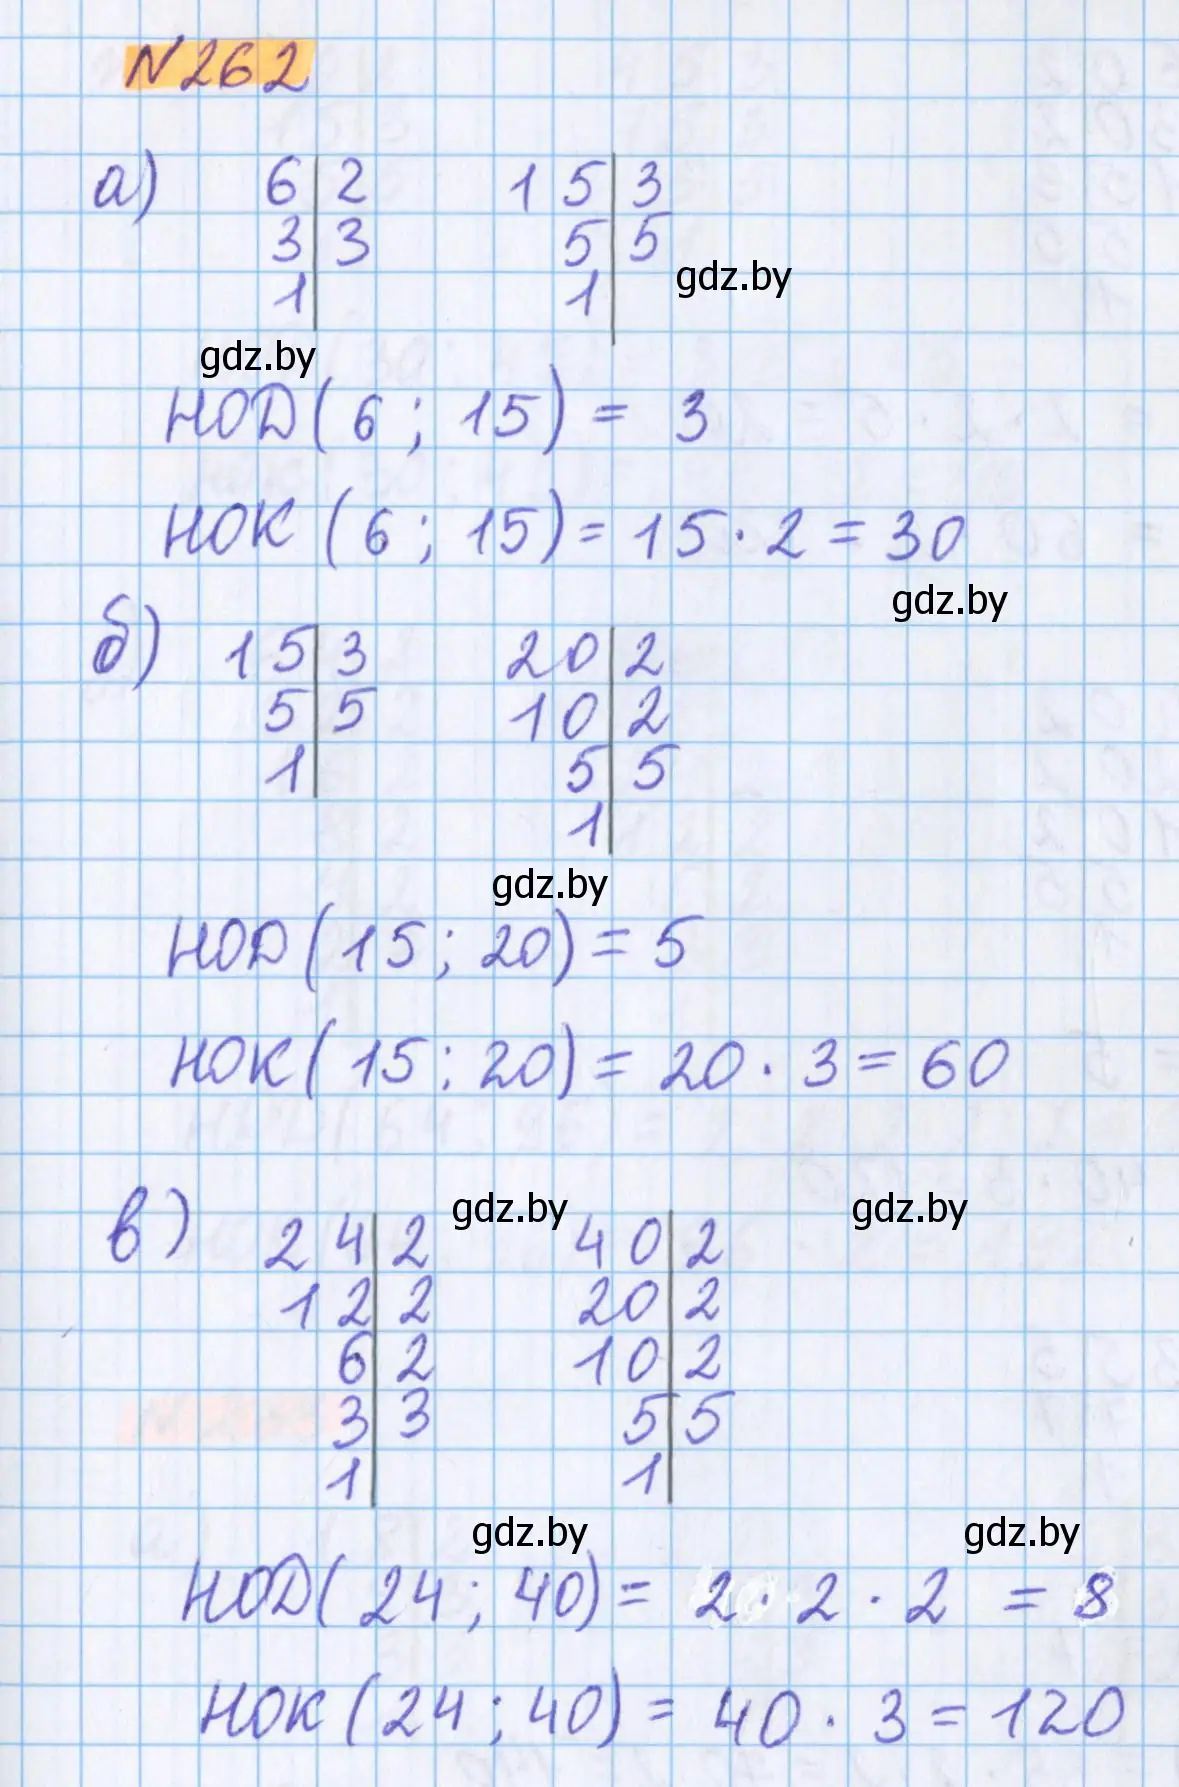 N262
а) 6 | 2 15 | 3
3 | 3 5 | 5
gdz.by
1 | 1 |
gdz.by
НОД(6 ; 15) = 3
НОК (6 ; 15) = 15 · 2 = 30
gdz.by
б) 15 | 3 20 | 2
5 | 5 10 | 2
1 | 5 | 5
1 |
gdz.by
НОД(15 ; 20) = 5
НОК(15 ; 20) = 20 · 3 = 60
gdz.by gdz.by
в) 24 | 2 40 | 2
12 | 2 20 | 2
6 | 2 10 | 2
3 | 3 5 | 5
1 | 1 |
gdz.by gdz.by
НОД(24 ; 40) = 2 · 2 · 2 = 8
НОК(24 ; 40) = 40 · 3 = 120